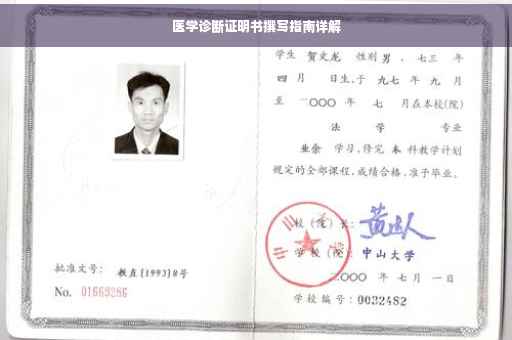 医学诊断证明书撰写指南详解
学生 贺文龙 性别 男 、七三 年
四 月 日生,于 九七 年 九 月
至 二〇〇〇 年 七 月在本校(院)
法 学 专业
业余 学习,修完 本 科教学计划
规定的全部课程,成绩合格,准予毕业。
校 (院) 长:
学 校 (院): 中山大学
二〇〇〇 年 七 月 一 日
学校编号: 0032482
批准文号: 教直[1993]8号
No. 01663286